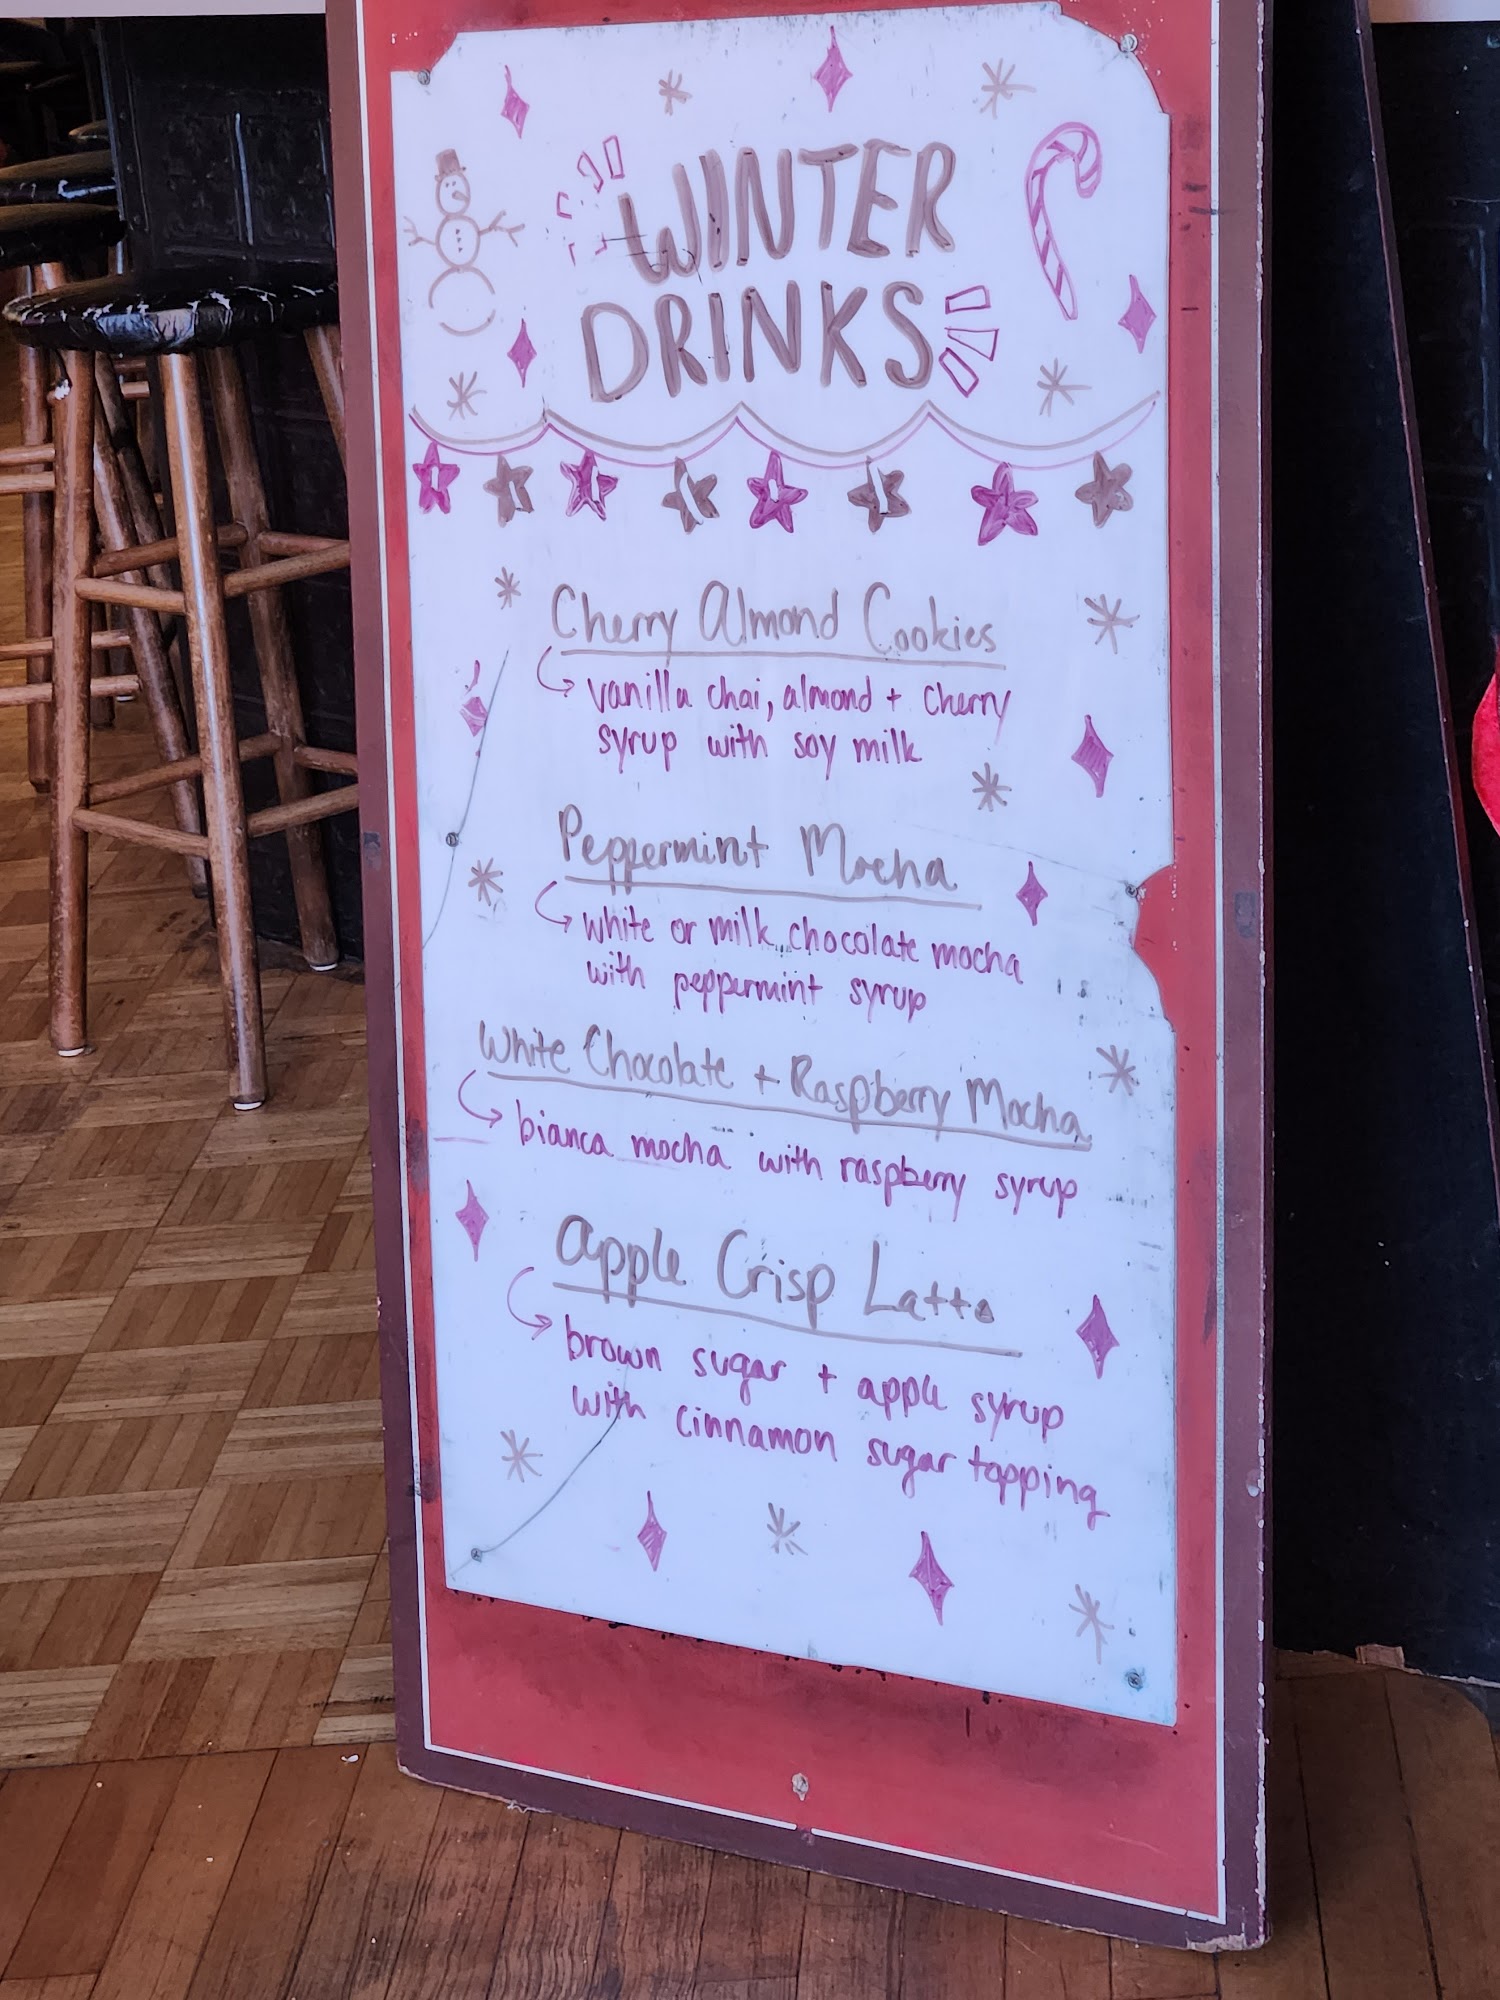 WINTER
DRINKS
Cherry Almond Cookies
vanilla chai, almond + cherry
syrup with soy milk
Peppermint Mocha
white or milk chocolate mocha
with peppermint syrup
White Chocolate + Raspberry Mocha
bianca mocha with raspberry syrup
Apple Crisp Latte
brown sugar + apple syrup
with cinnamon sugar topping